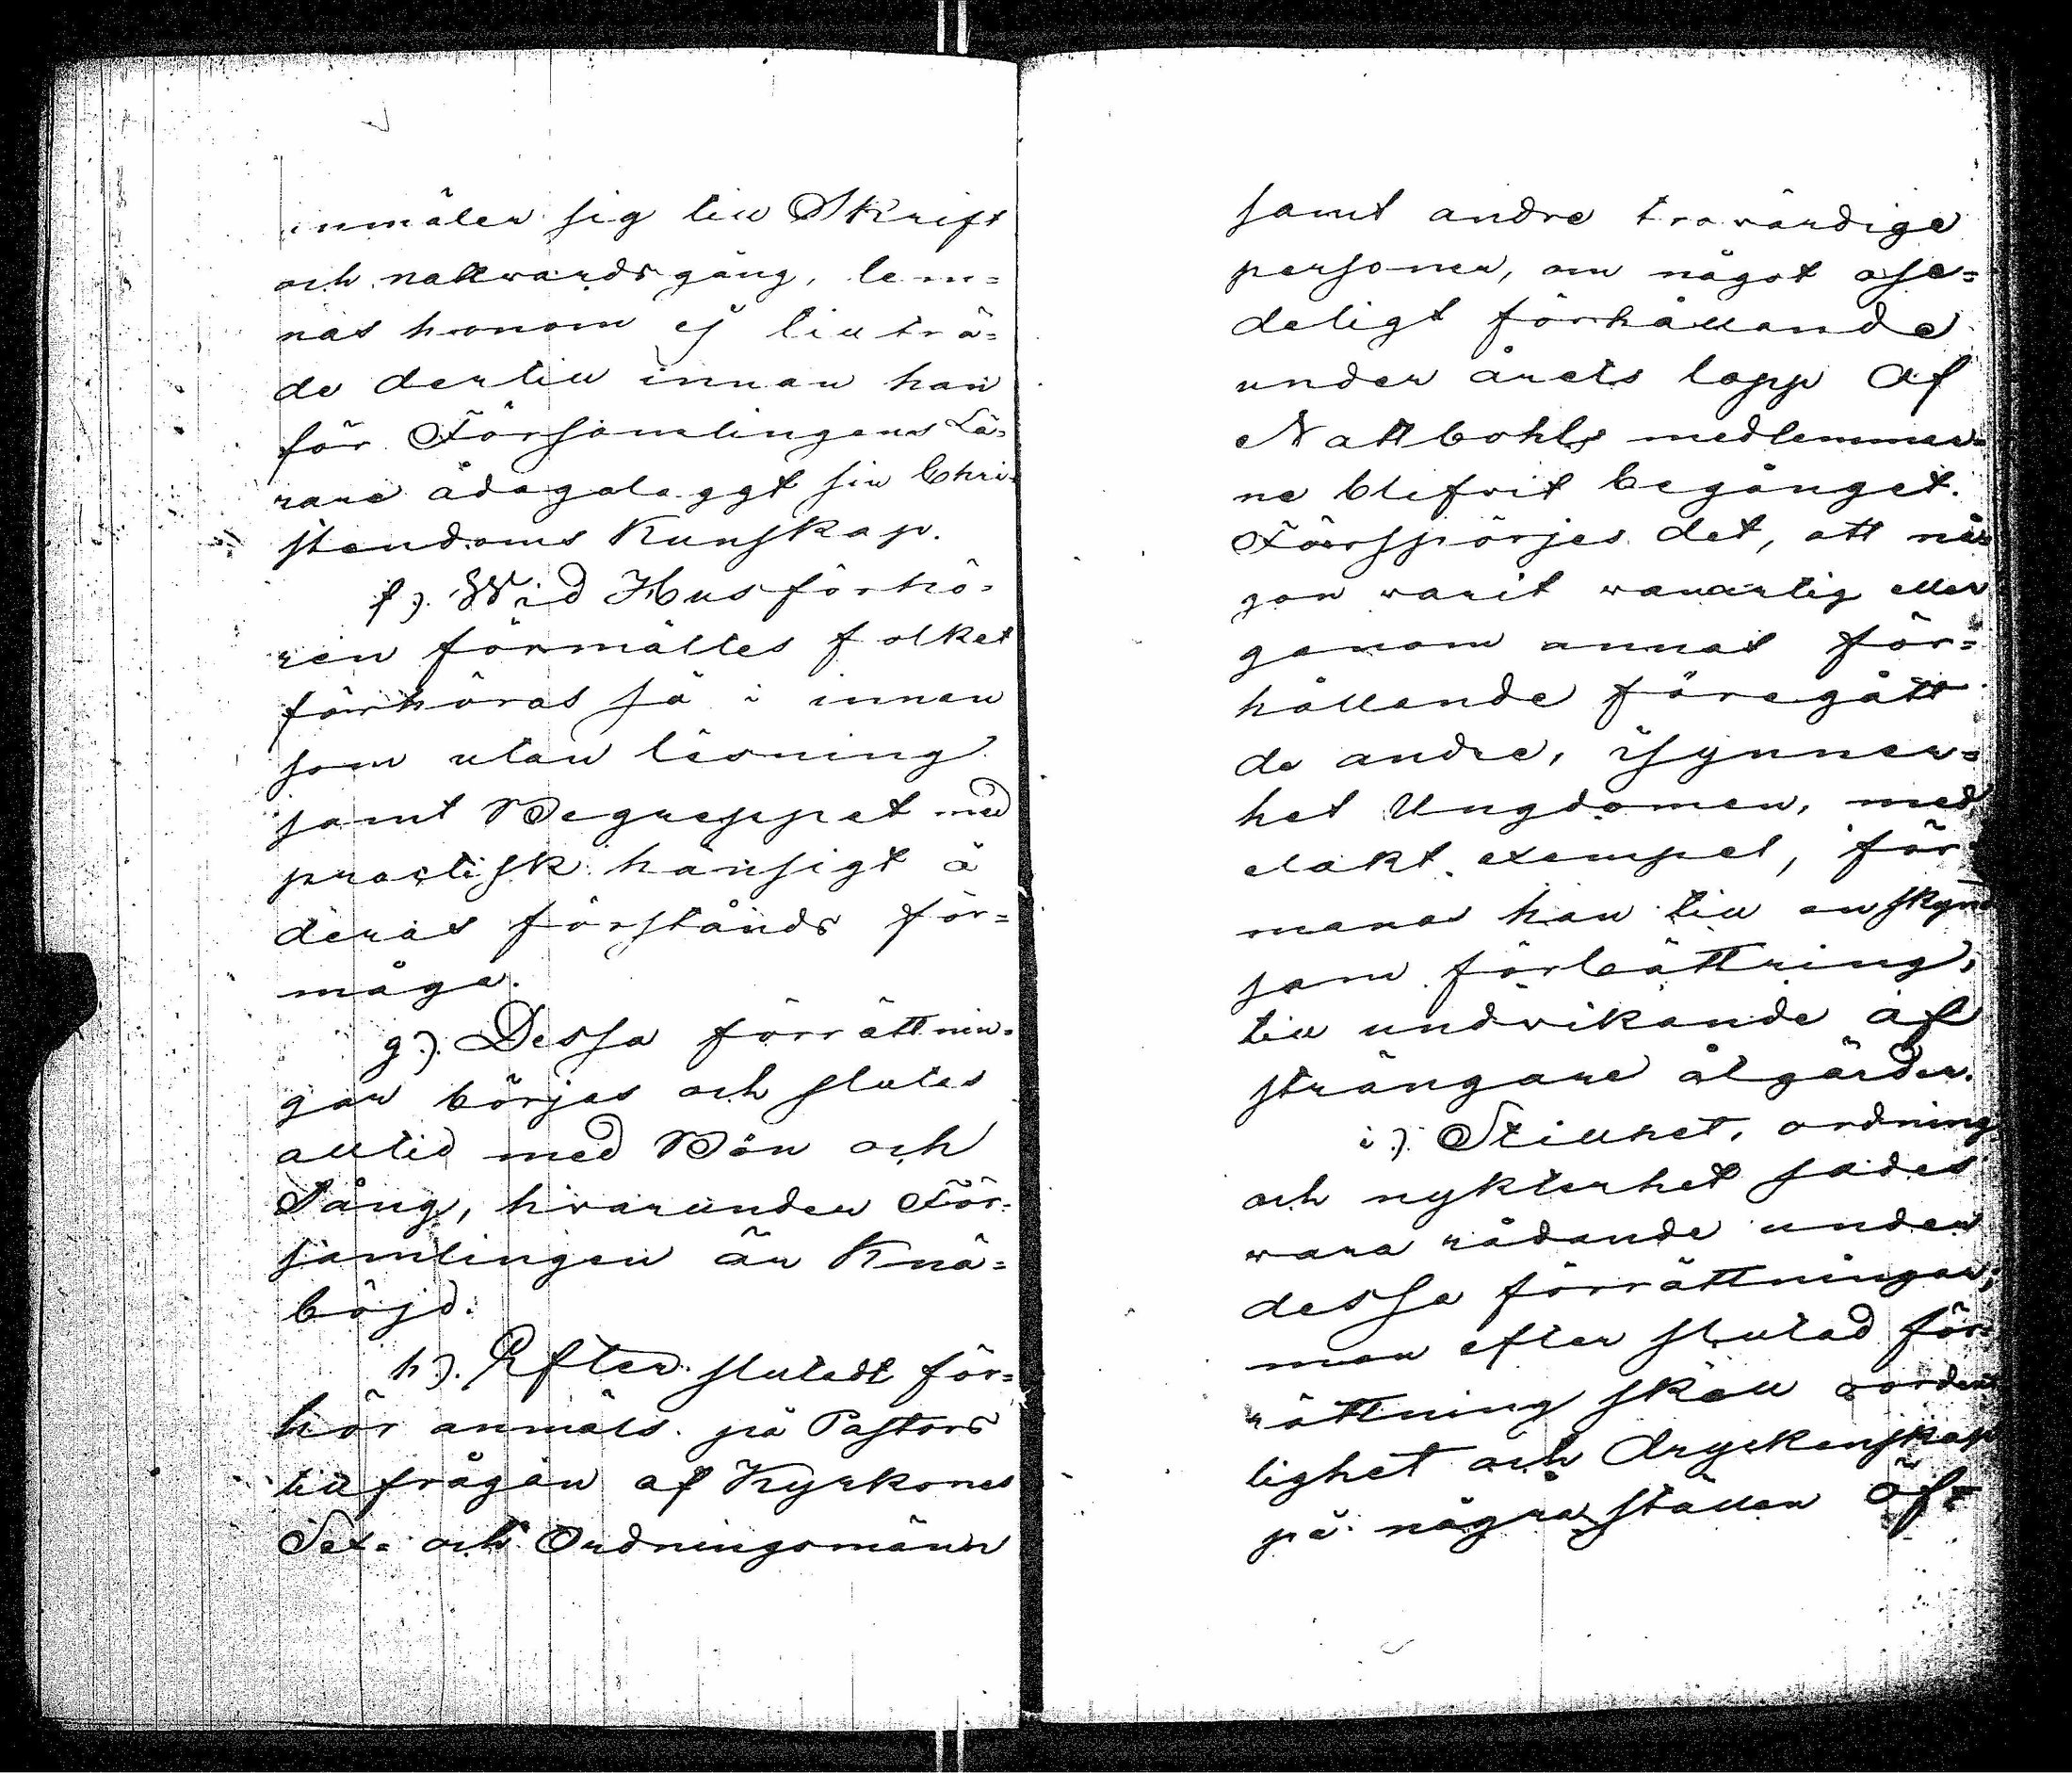 anmäler sig till Skrift
och nattwardsgång, lem=
nas honom ej tillträ=
de dertill innan han
för Församlingens Lä=
rare ådagalaggt sin Chri=
stendoms Kunskap.
f). Wid Husförhö=
ren förmältes folket
förhöras så i innan
som utan läsning
samt Begreppet med
practisk hänsigt å
deras förstånds för=
måga.
g). Dessa förrättnin=
gar börjas och slutas
alltid med Bön och
Sång, hvarunder För=
samlingen är Knä=
böjd.
h). Efter slutadt för=
hör anmäls på Pastors
tillfrågan af Kyrkones
Sex- och Ordningsmänn
samt andre trovärdige
personer, om något ose=
deligt förhållande
under årets lopp Af
Nattbohls medlemmar=
ne blifvit begånget.
Förspörjes det, att nå=
gon varit wanartig eller
genom annat för=
hållande föregått
de andre, isynner=
het Ungdomen, med
elakt exempel, för=
manas han till en skynd
sam förbättring,
till undvikande af
strängare åtgärder.
i). Stillhet, ordning
och nykterhet sades
wara rådande under
dessa förrättningar;
men efter slutad för=
rättning skall oordent
lighet och dryckenskap
på några ställen Oft